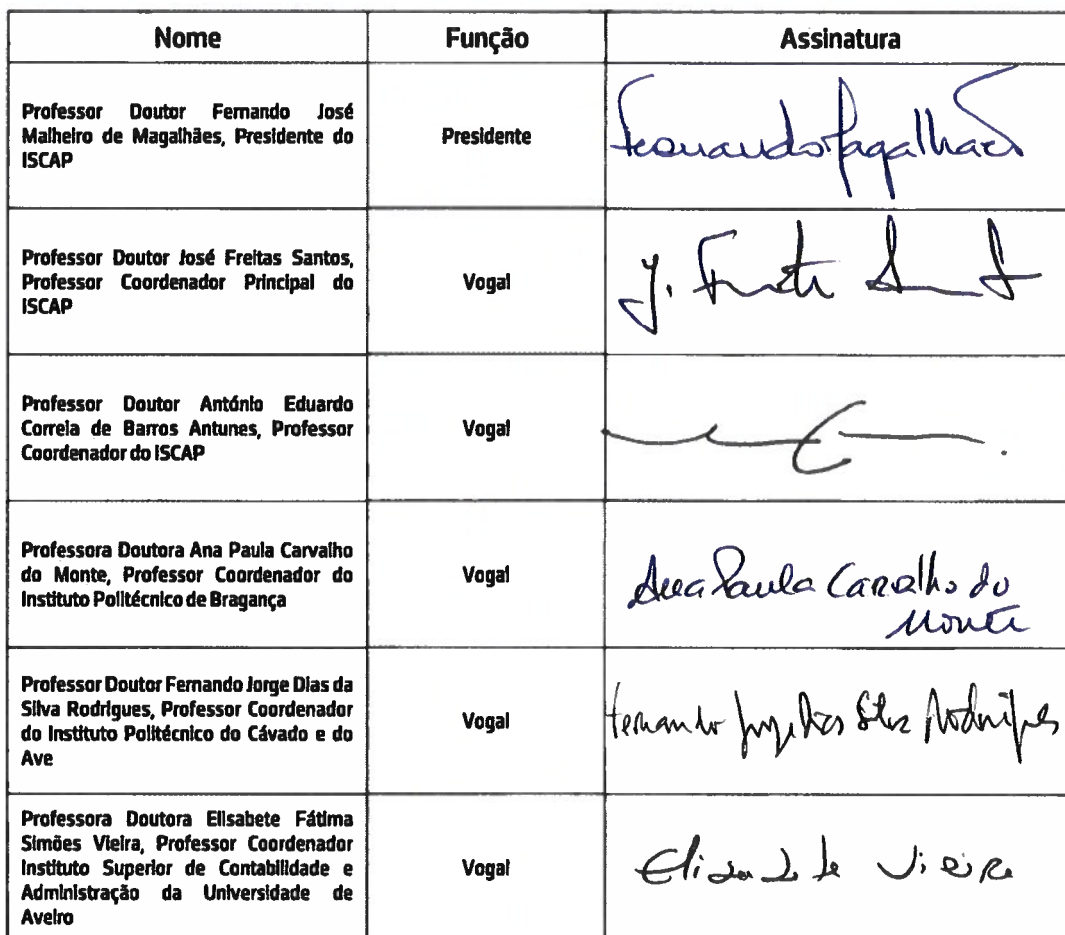 Nome Função Assinatura
Professor Doutor Fernando José
Malheiro de Magalhães, Presidente do
ISCAP
Presidente
Fernando Magalhães
Professor Doutor José Freitas Santos,
Professor Coordenador Principal do
ISCAP
Vogal
J. Freitas Santos
Professor Doutor António Eduardo
Correia de Barros Antunes, Professor
Coordenador do ISCAP
Vogal
Professora Doutora Ana Paula Carvalho
do Monte, Professor Coordenador do
Instituto Politécnico de Bragança
Vogal
Ana Paula Carvalho do
Monte
Professor Doutor Fernando Jorge Dias da
Silva Rodrigues, Professor Coordenador
do Instituto Politécnico do Cávado e do
Ave
Vogal
Fernando Jorge Dias Silva Rodrigues
Professora Doutora Elisabete Fátima
Simões Vieira, Professor Coordenador
Instituto Superior de Contabilidade e
Administração da Universidade de
Aveiro
Vogal
Elisabete Vieira